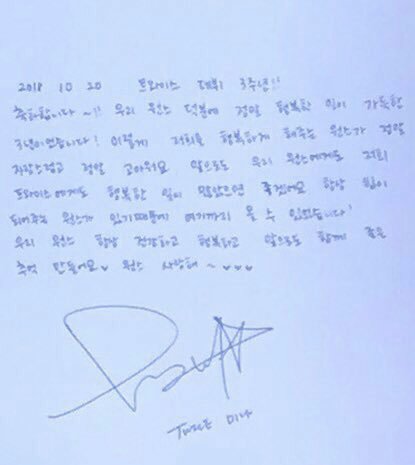 2018 10 20 트와이스 데뷔 3주년!!
축하합니다~!! 우리 원스 덕분에 정말 행복한 일이 가득한
3년이었습니다! 이렇게 저희를 행복하게 해주는 원스가 정말
자랑스럽고 정말 고마워요 앞으로도 우리 원스에게도 저희
트와이스에게도 행복한 일이 많았으면 좋겠어요 항상 힘이
되어주는 원스가 있기때문에 여기까지 올 수 있었습니다!
우리 원스 항상 건강하고 행복하고 앞으로도 함께 좋은
추억 만들어요♥ 원스 사랑해~♥♥♥
TWICE 미나